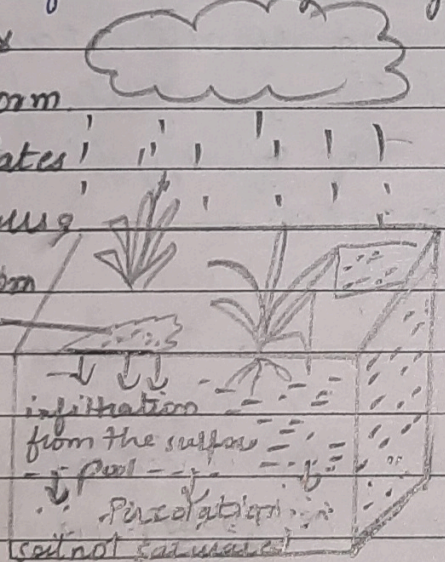 orm
ates
infiltration
from the surface
pool
Percolation
soil not saturated